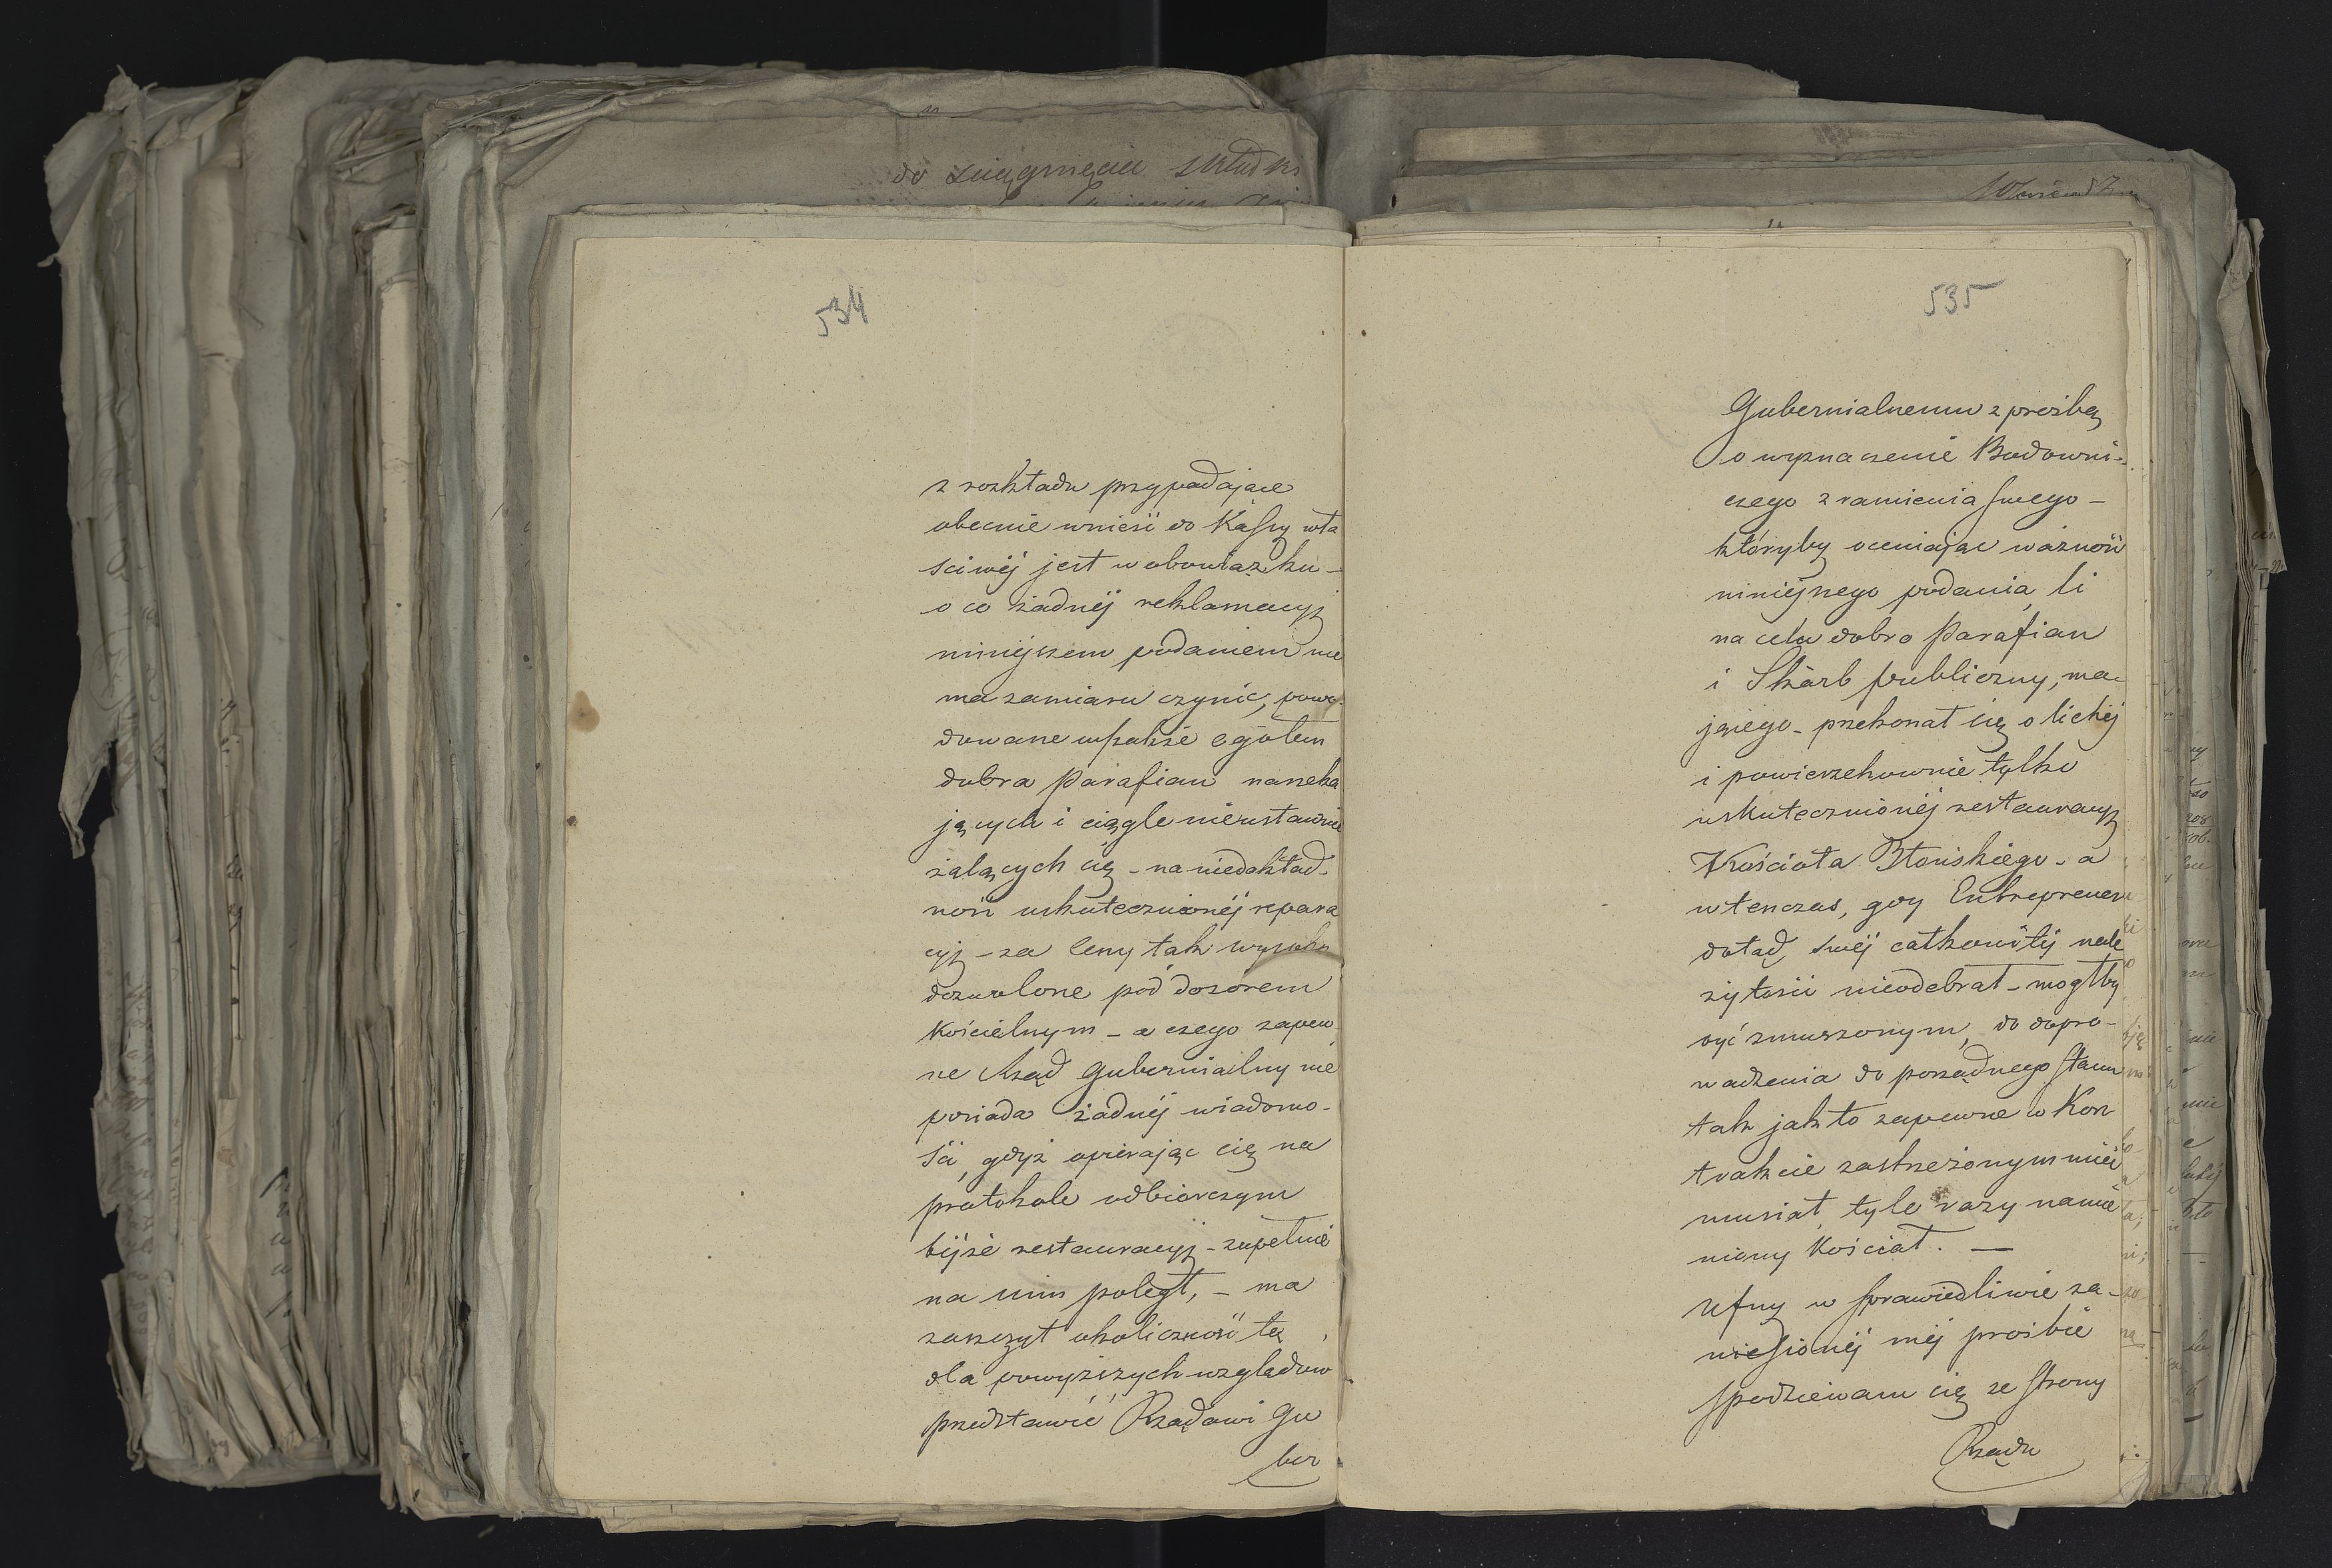 do zaciągnięcia składki
534
z rozkładu przypadające
obecnie wnieść do Kassy wła
sciwéj jest w obowiązku –
o co żadnéj reklamacyj
niniejszem podaniem nie
ma zamiaru czynić, powo-
dowane wszakże ogółem
dobra Parafian narzeka
jących i ciągle nieustannie
żalących się – na niedokład-
ność uskutecznionéj repara
cyj – za ceny tak wysoko
dozwolone pod dozorem
Kościelnym – a czego zapew
ne Rząd Gubernialny nie
posiada żadnéj wiadomo-
ści, gdyż opierając się na
protokole odbiorczym
tejże restauracyj – zupełnie
na nim poległ, – ma
zaszczyt okoliczność tę
dla powyższych względow
przedstawić Rządowi Gu
ber
535
Gubernialnemu z prośbą
o wyznaczenie Budowni=
czego z ramienia swego –
któryby oceniając ważność
niniejszego podania, li
na celu dobro Parafian
i Skarb publiczny, ma-
jącego – przekonał się o lichéj
i powierzchownie tylko
uskutecznionéj restauracyj
Kościoła Błońskiego – a
wtenczas, gdy Entreprener
dotąd, swéj całkowitéj nale
żytości nieodebrał – mogłby
być zmuszonym, do dopro-
wadzenia do porządnego stanu
tak jak to zapewne w Kon
trakcie zastrzeżonym mieć
musiał, tyle razy namie
niony Kościoł. —
Ufny w sprawiedliwie za-
niesionéj méj prośbie
spodziewam się ze strony
Rządu